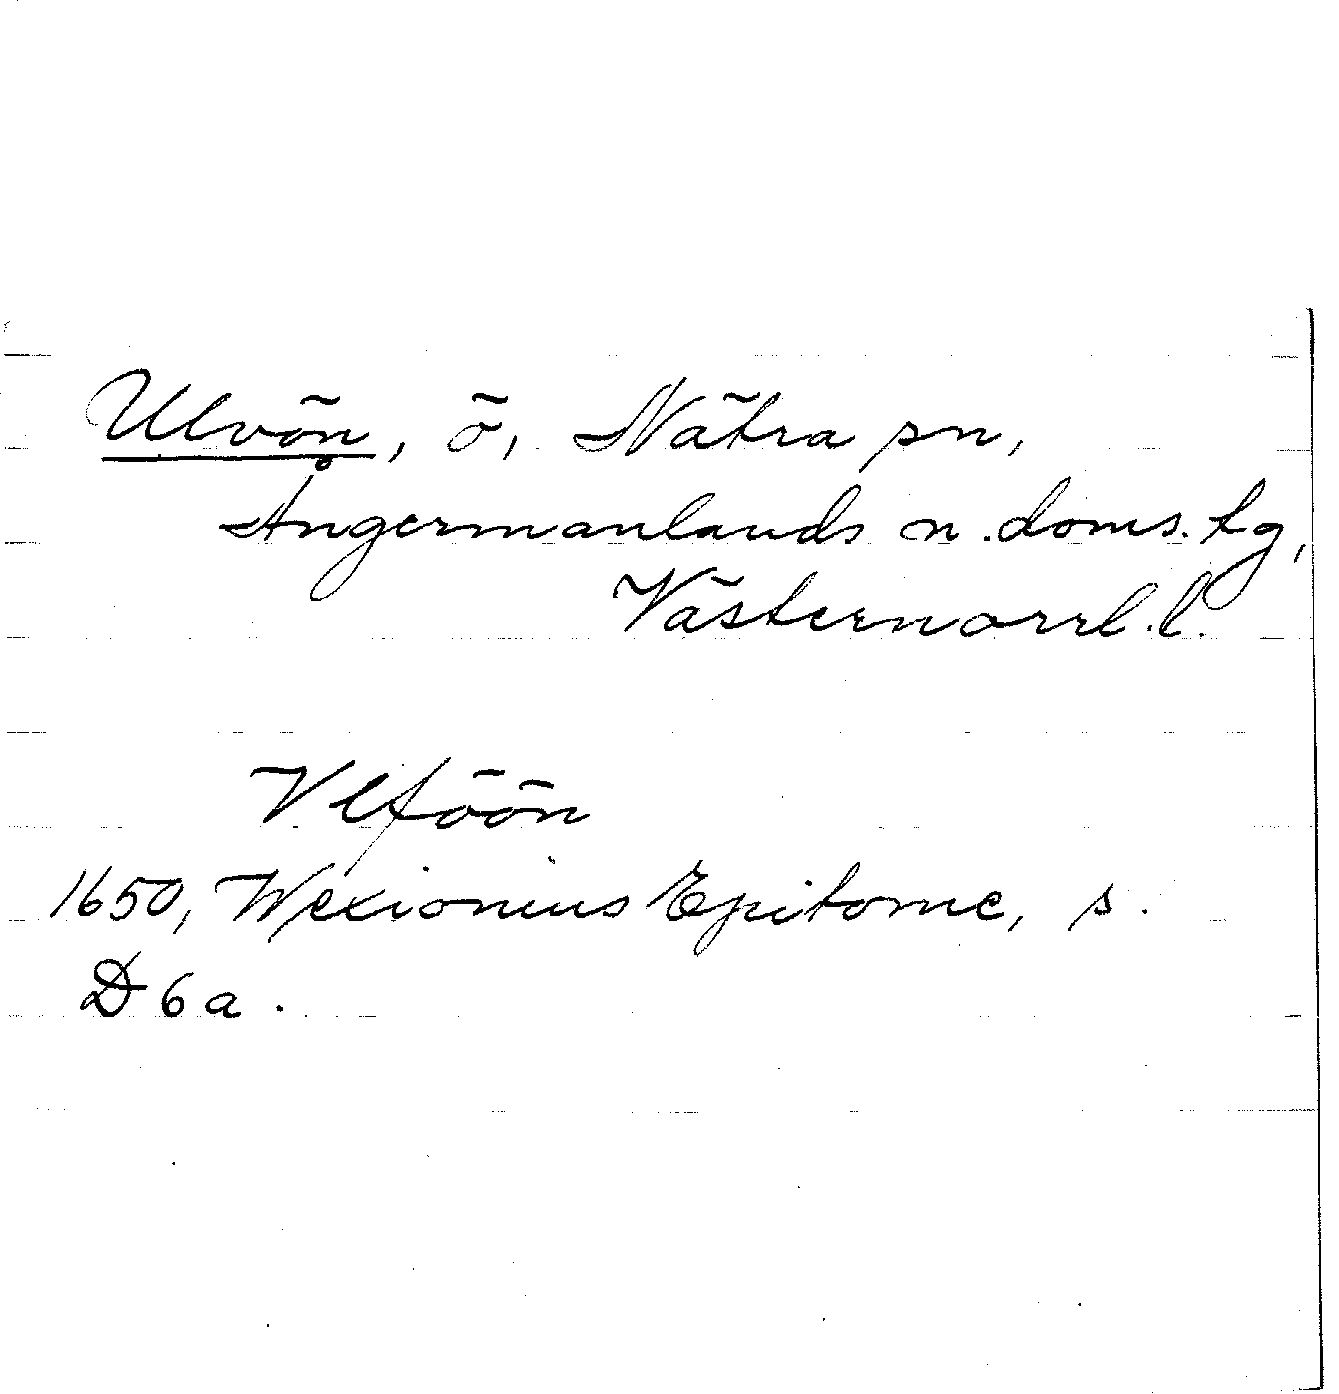 Ulvön, ö, Nätra sn,
Ångermanlands n. doms. tg,
Västernorrl. l.
Vlföön
1650, Wexionius Epitome, s.
D 6 a.